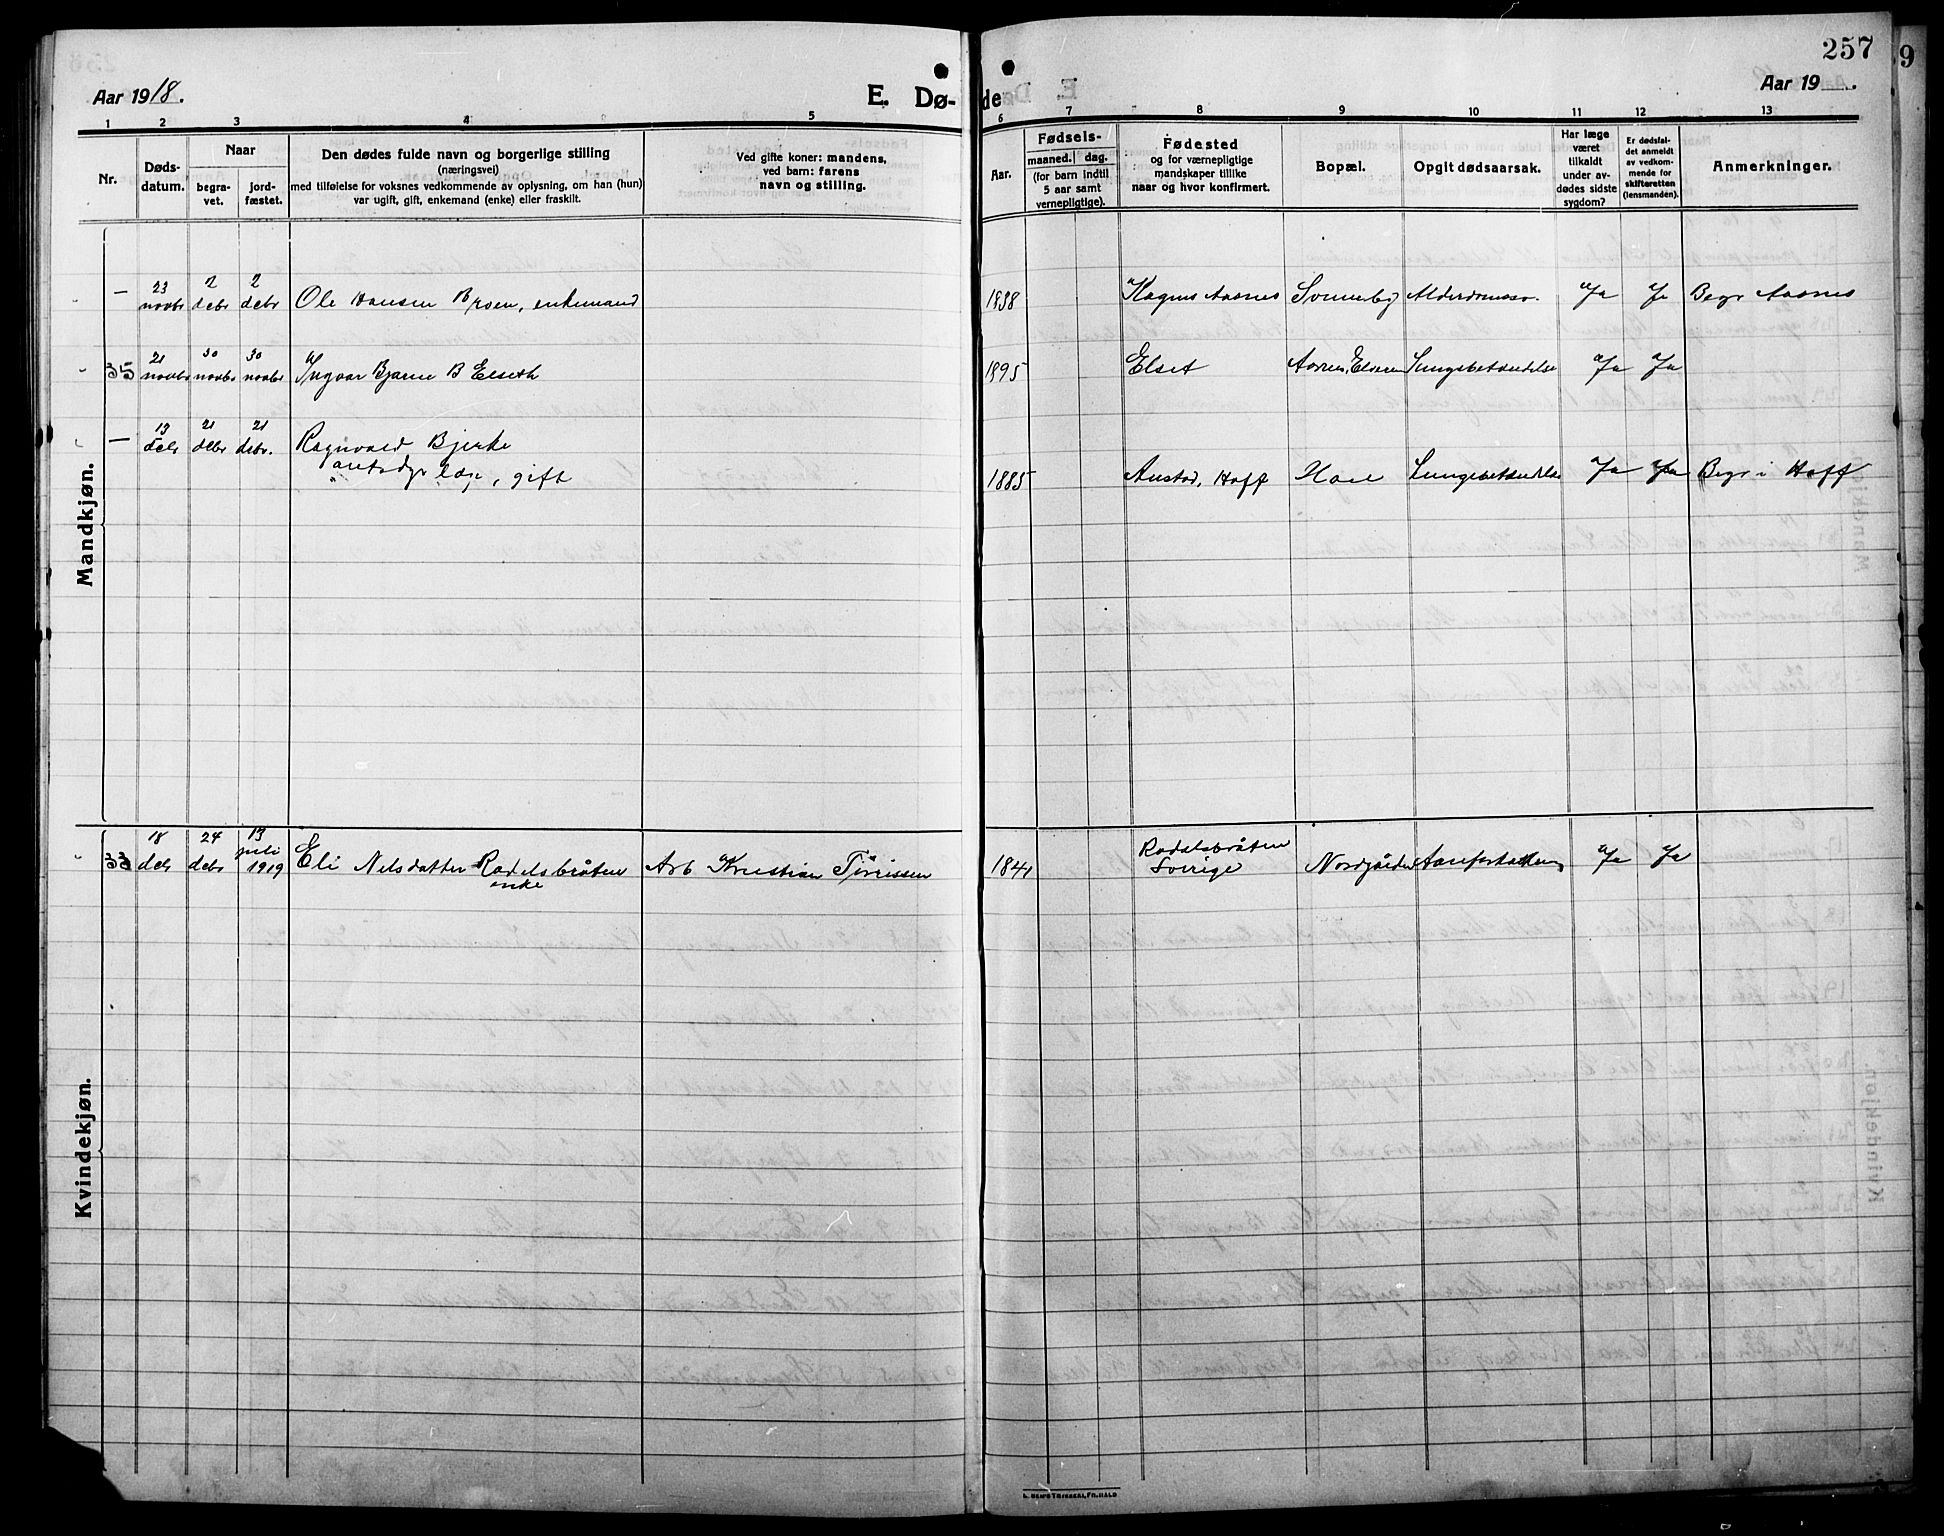 257
9
Aar 1918.
E. Dø-
de
Aar 19 .
1 2 3 4 5 6 7 8 9 10 11 12 13
Nr.
Døds-
datum.
Naar
begra-
vet.
jord-
fæstet.
Den dødes fulde navn og borgerlige stilling
(næringsvei)
med tilføielse for voksnes vedkommende av oplysning, om han (hun)
var ugift, gift, enkemand (enke) eller fraskilt.
Ved gifte koner: mandens,
ved barn: farens
navn og stilling.
Aar.
Fødsels-
maaned. dag.
(for barn indtil
5 aar samt
vernepligtige).
Fødested
og for værnepligtige
mandskaper tillike
naar og hvor konfirmert.
Bopæl.
Opgit dødsaarsak.
Har læge
været
tilkaldt
under av-
dødes sidste
sygdom?
Er dødsfal-
det anmeldt
av vedkom-
mende for
skifteretten
(lensmanden).
Anmerkninger.
Mandkjøn.
— 23 novbr 2 debr 2 debr Ole Hansen enkemand 1838 Aasnes Ja Ja Begr Aasnes
35 21 novbr 30 novbr 30 novbr Yngvar Bjarne B Elseth 1895 Elset Lungebetændelse Ja Ja
— 13 debr 21 debr 21 debr. Ragnvald Bjerke
læge, gift 1885 Hoff Lungebetændelse Ja Ja Begr i Hoff
Kvindekjøn.
33 18 debr 24 debr 13 juli 1919 Eli Nilsdatter Radelsbråten
enke
Arb Kristian Tørrissen 1841 Radalsbråten
Sverige
Ja Ja